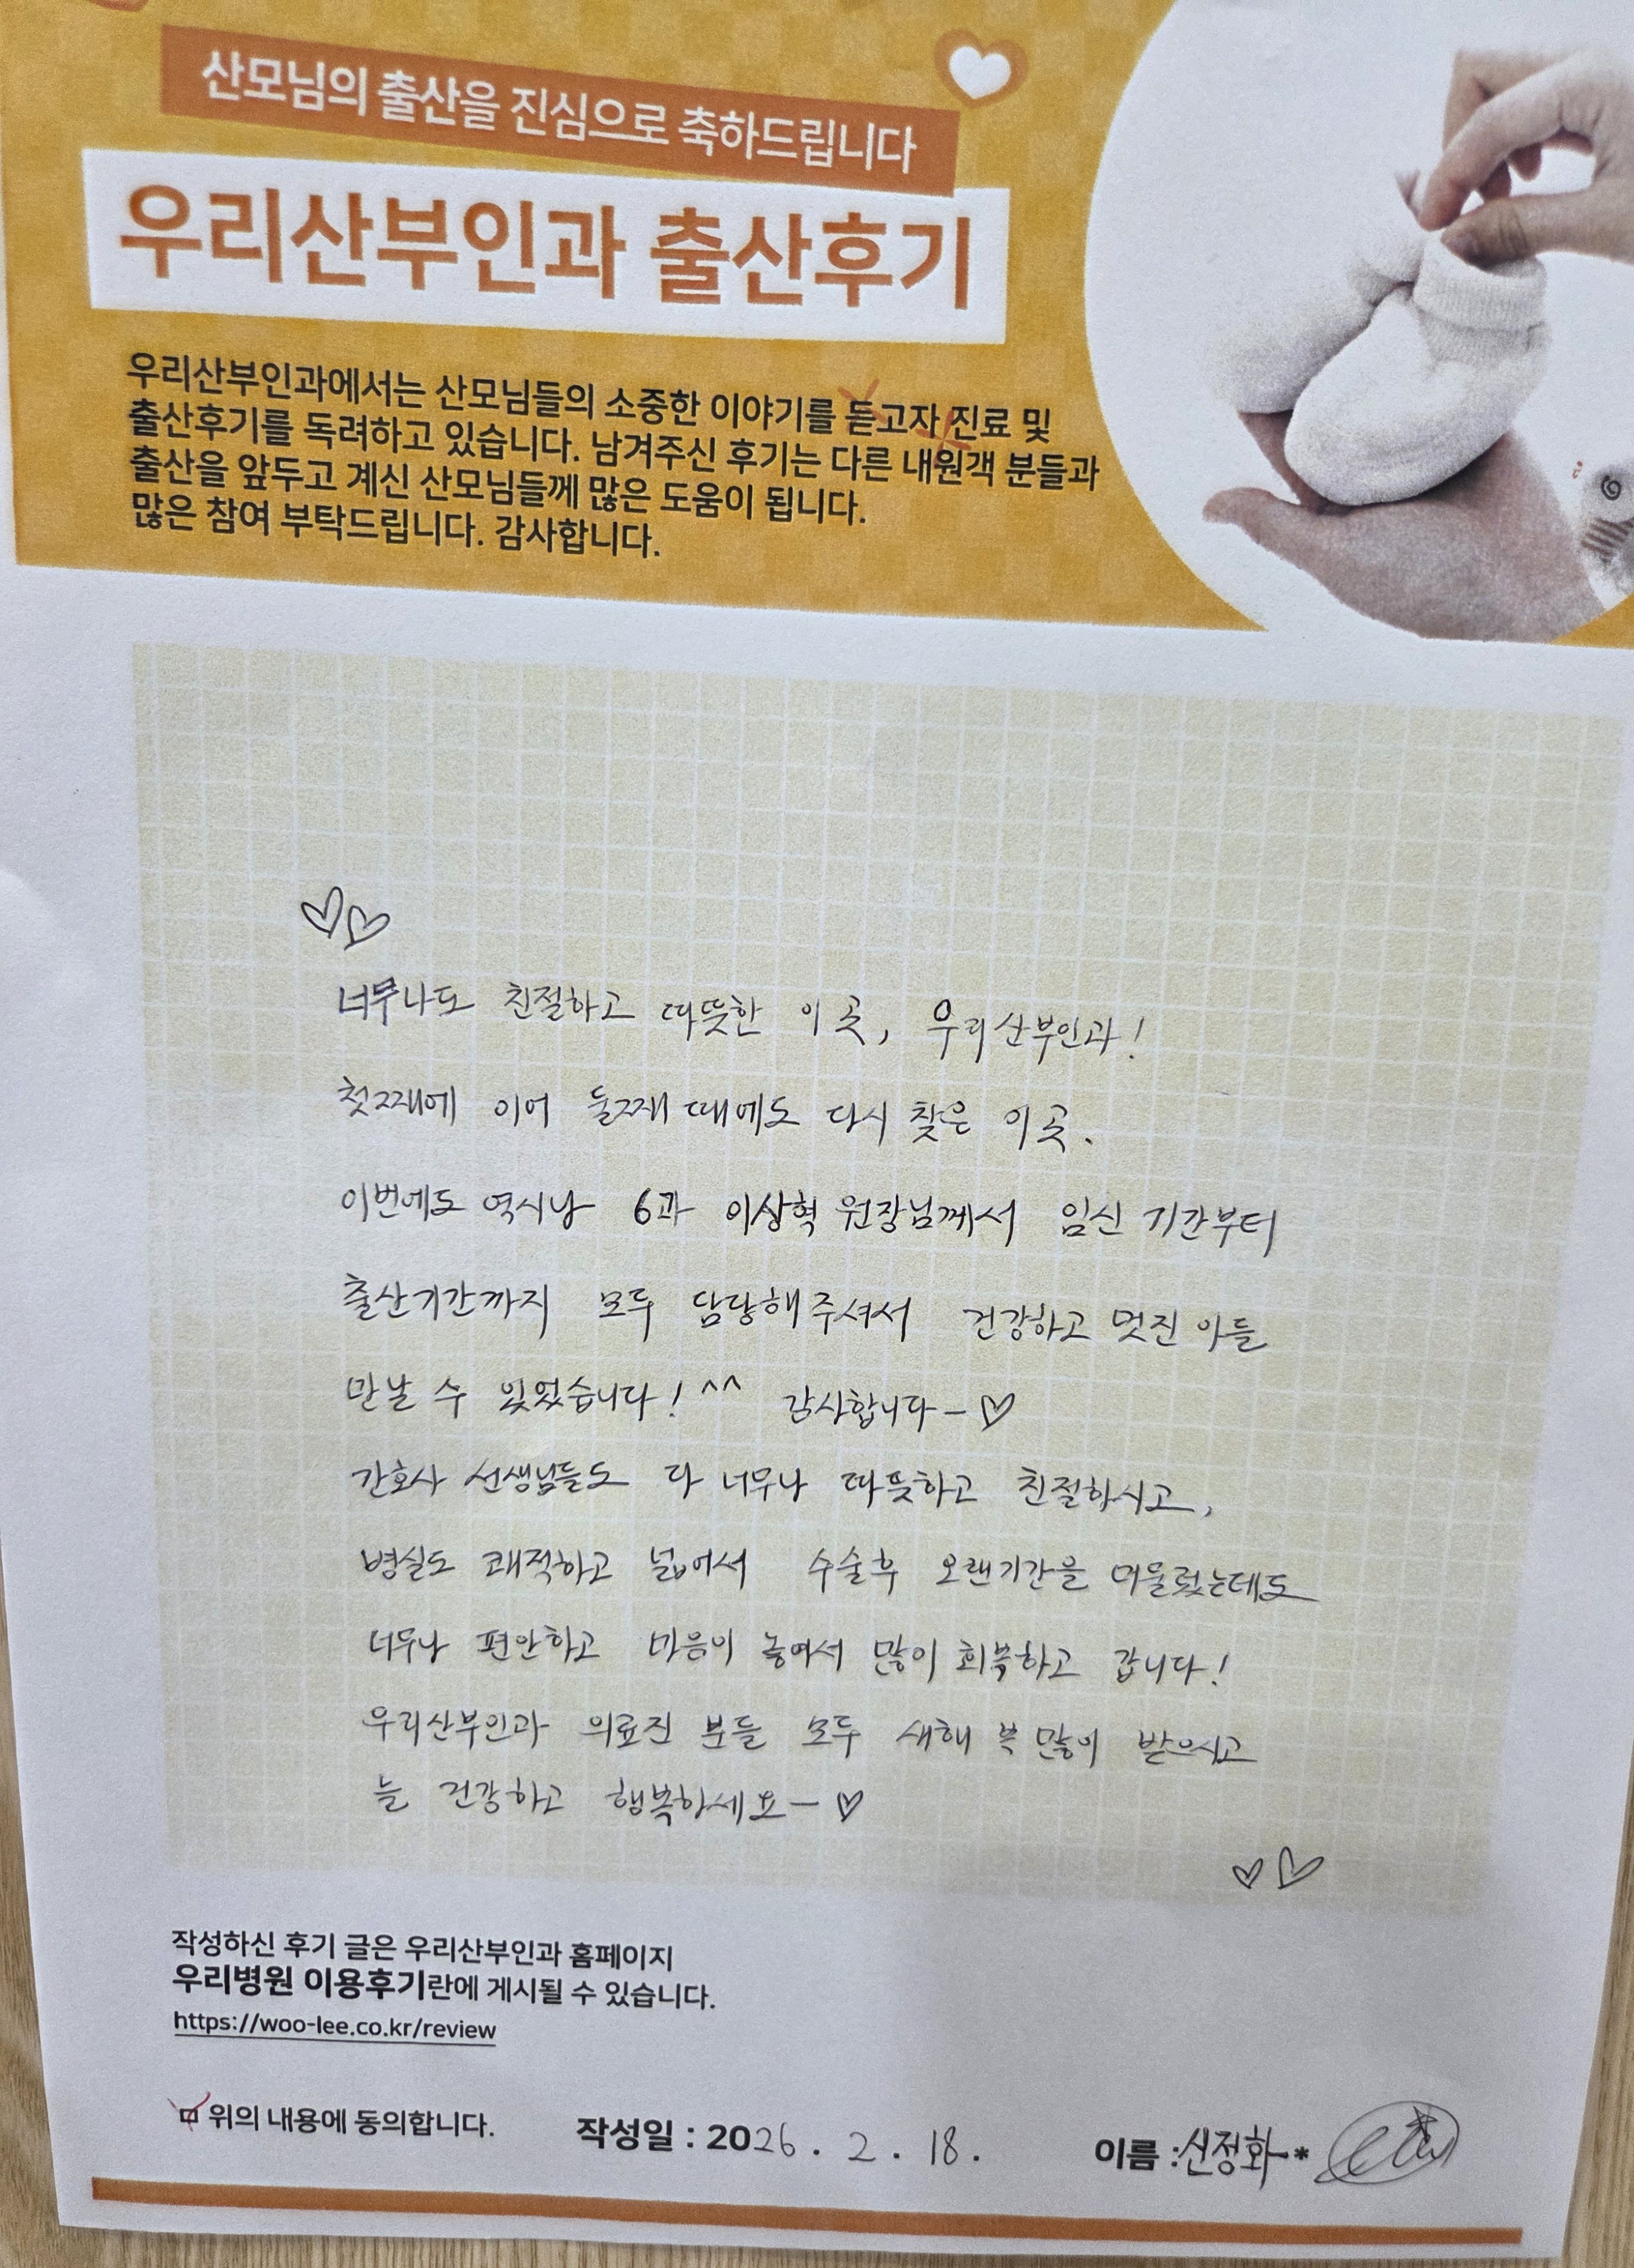 산모님의 출산을 진심으로 축하드립니다
우리산부인과 출산후기
우리산부인과에서는 산모님들의 소중한 이야기를 듣고자 진료 및
출산후기를 독려하고 있습니다. 남겨주신 후기는 다른 내원객 분들과
출산을 앞두고 계신 산모님들께 많은 도움이 됩니다.
많은 참여 부탁드립니다. 감사합니다.
너무나도 친절하고 따뜻한 이 곳, 우리산부인과!
첫째에 이어 둘째 때에도 다시 찾은 이 곳.
이번에도 역시나 6과 이상혁 원장님께서 임신 기간부터
출산기간까지 모두 담당해주셔서 건강하고 멋진 아들
만날 수 있었습니다! ^^ 감사합니다-♡
간호사 선생님들도 다 너무나 따뜻하고 친절하시고,
병실도 쾌적하고 넓어서 수술후 오랜기간을 머물렀는데도
너무나 편안하고 마음이 놓여서 많이 회복하고 갑니다!
우리산부인과 의료진 분들 모두 새해 복 많이 받으시고
늘 건강하고 행복하세요-♡
작성하신 후기 글은 우리산부인과 홈페이지
우리병원 이용후기란에 게시될 수 있습니다.
https://woo-lee.co.kr/review
위의 내용에 동의합니다.
작성일 : 2026. 2. 18.
이름 : 신정화*